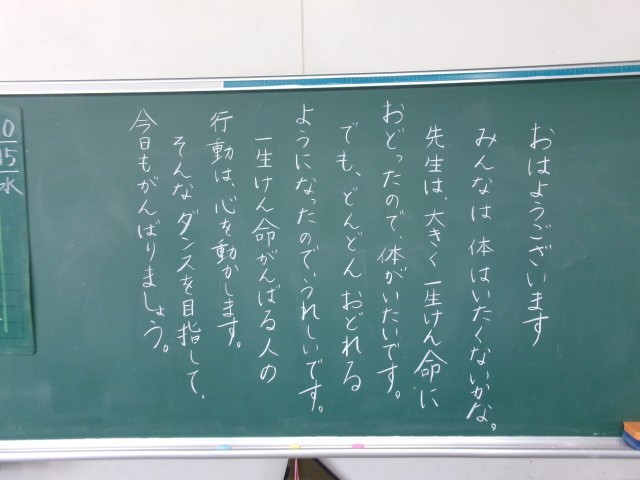 おはようございます
みんなは 体はいたくないかな。
先生は、大きく一生けん命に
おどったので、体がいたいです。
でも、どんどん おどれる
ようになったので、うれしいです。
一生けん命がんばる人の
行動は、心を動かします。
そんなダンスを目指して、
今日もがんばりましょう。
10
15
水